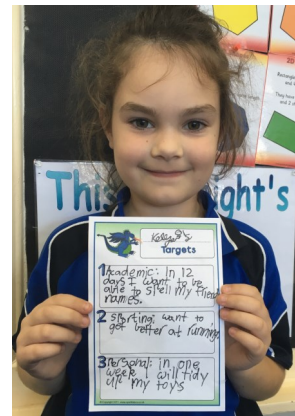 This ght's
Targets
1 Academic: In 12
days I want to be
able to spell my friends
names.
2 Sporting: want to
got better at running.
3 Personal: in one
week I will tidy
up my toys